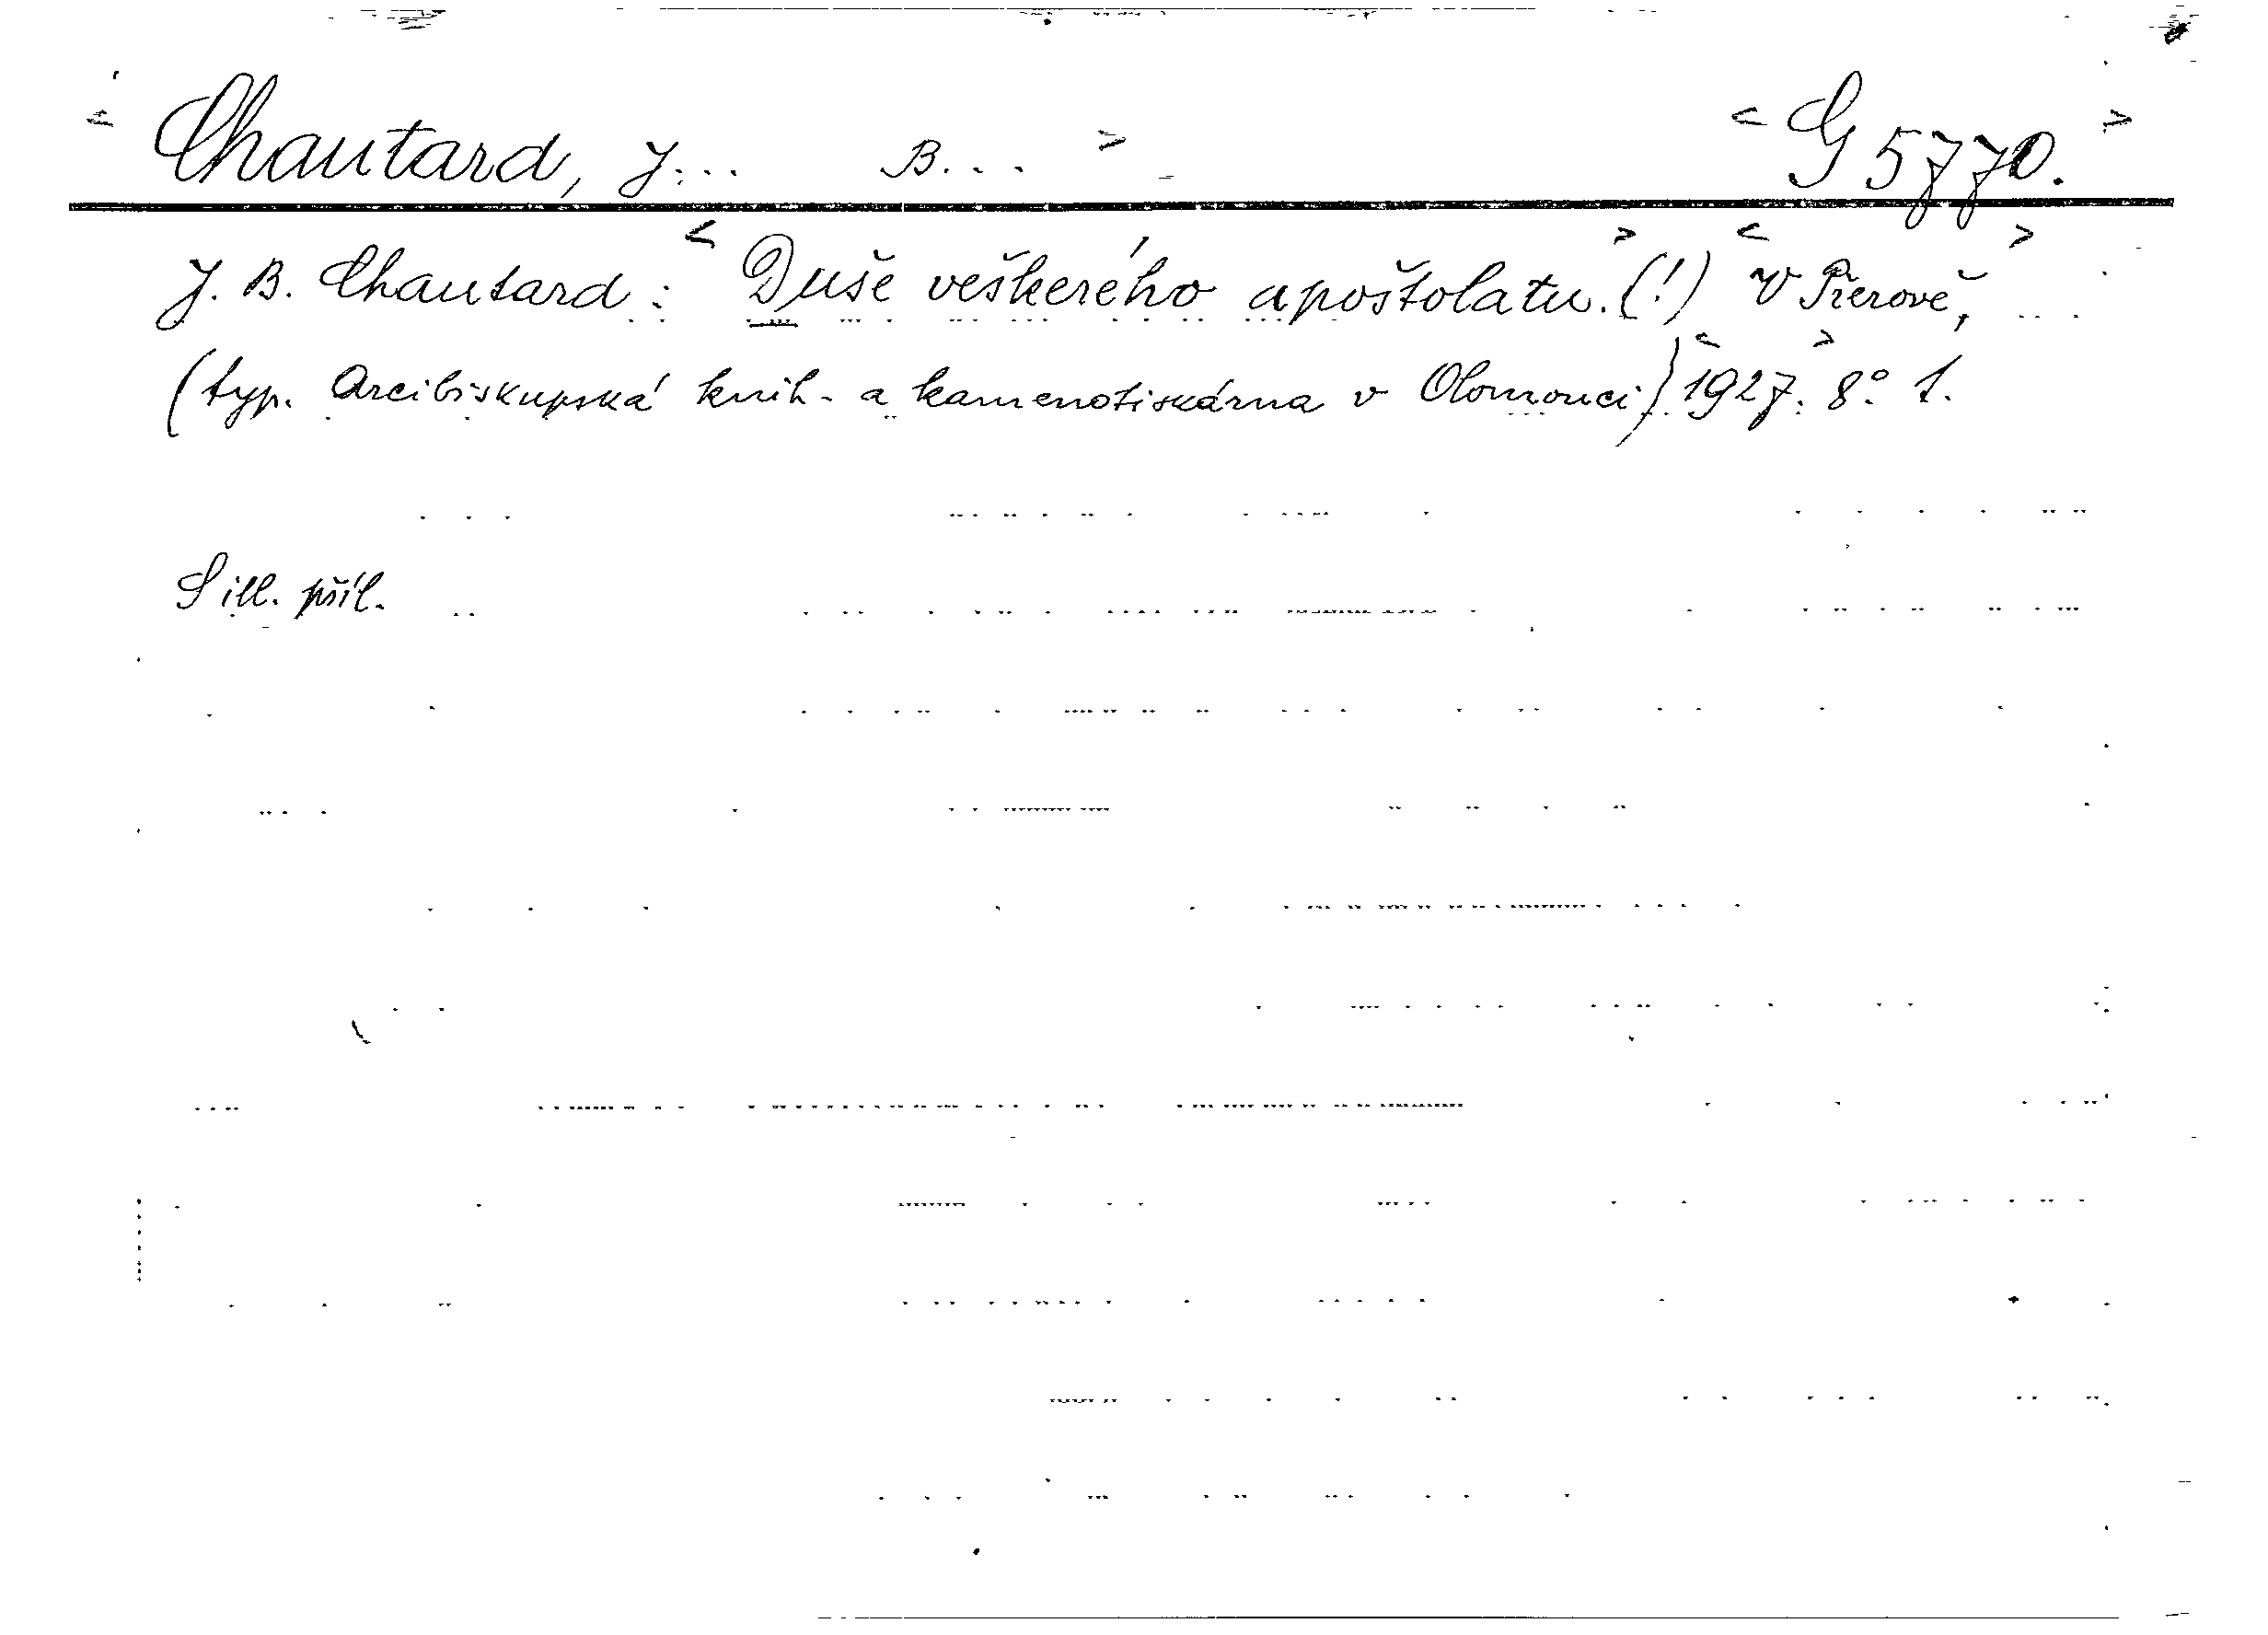 < Chautard, J... B... > < G 5770. >
J. B. Chautard: < Duše veškerého apoštolatu. > (!) < V Přerově, >
(typ. Arcibiskupská knih- a kamenotiskárna v Olomouci) < 1927. > 8° 1.
S ill. příl.